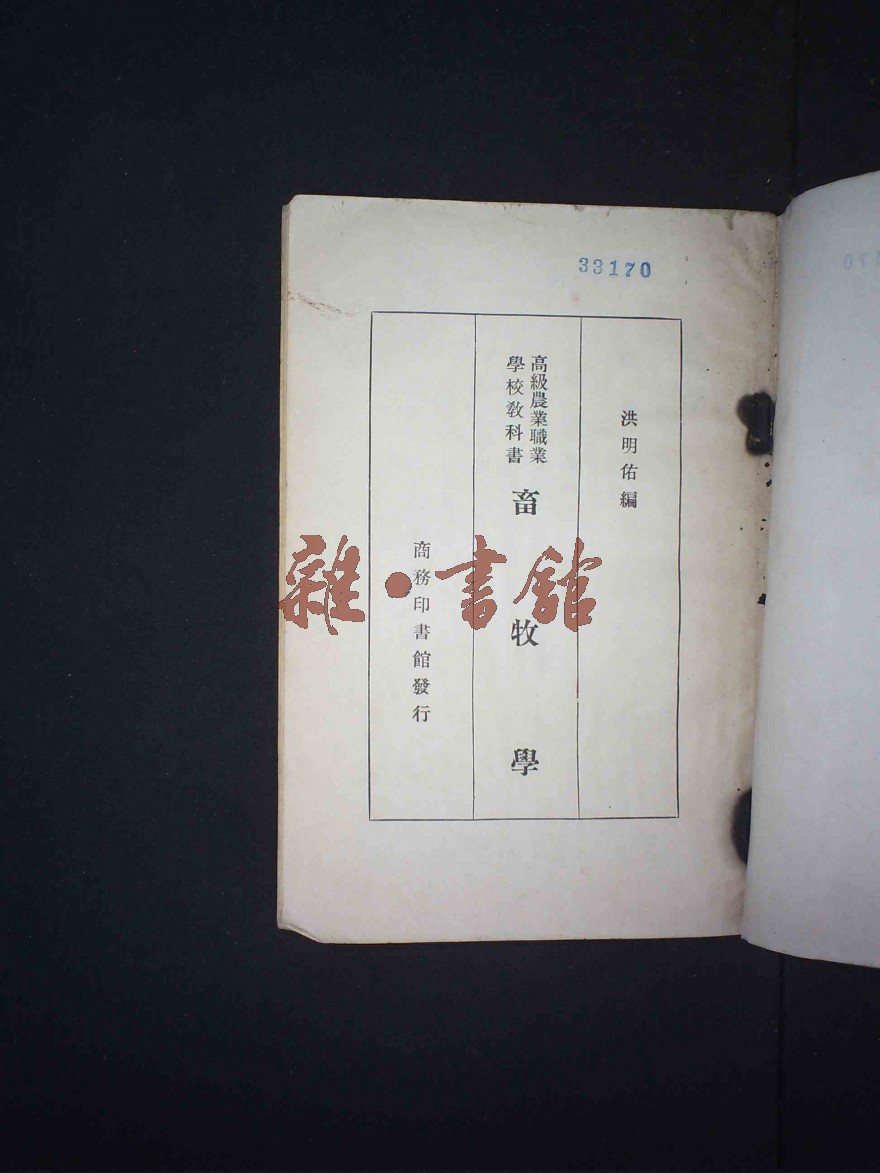 33170
洪明佑編
高級農業職業
學校敎科書
畜牧學
商務印書館發行
雜·書館